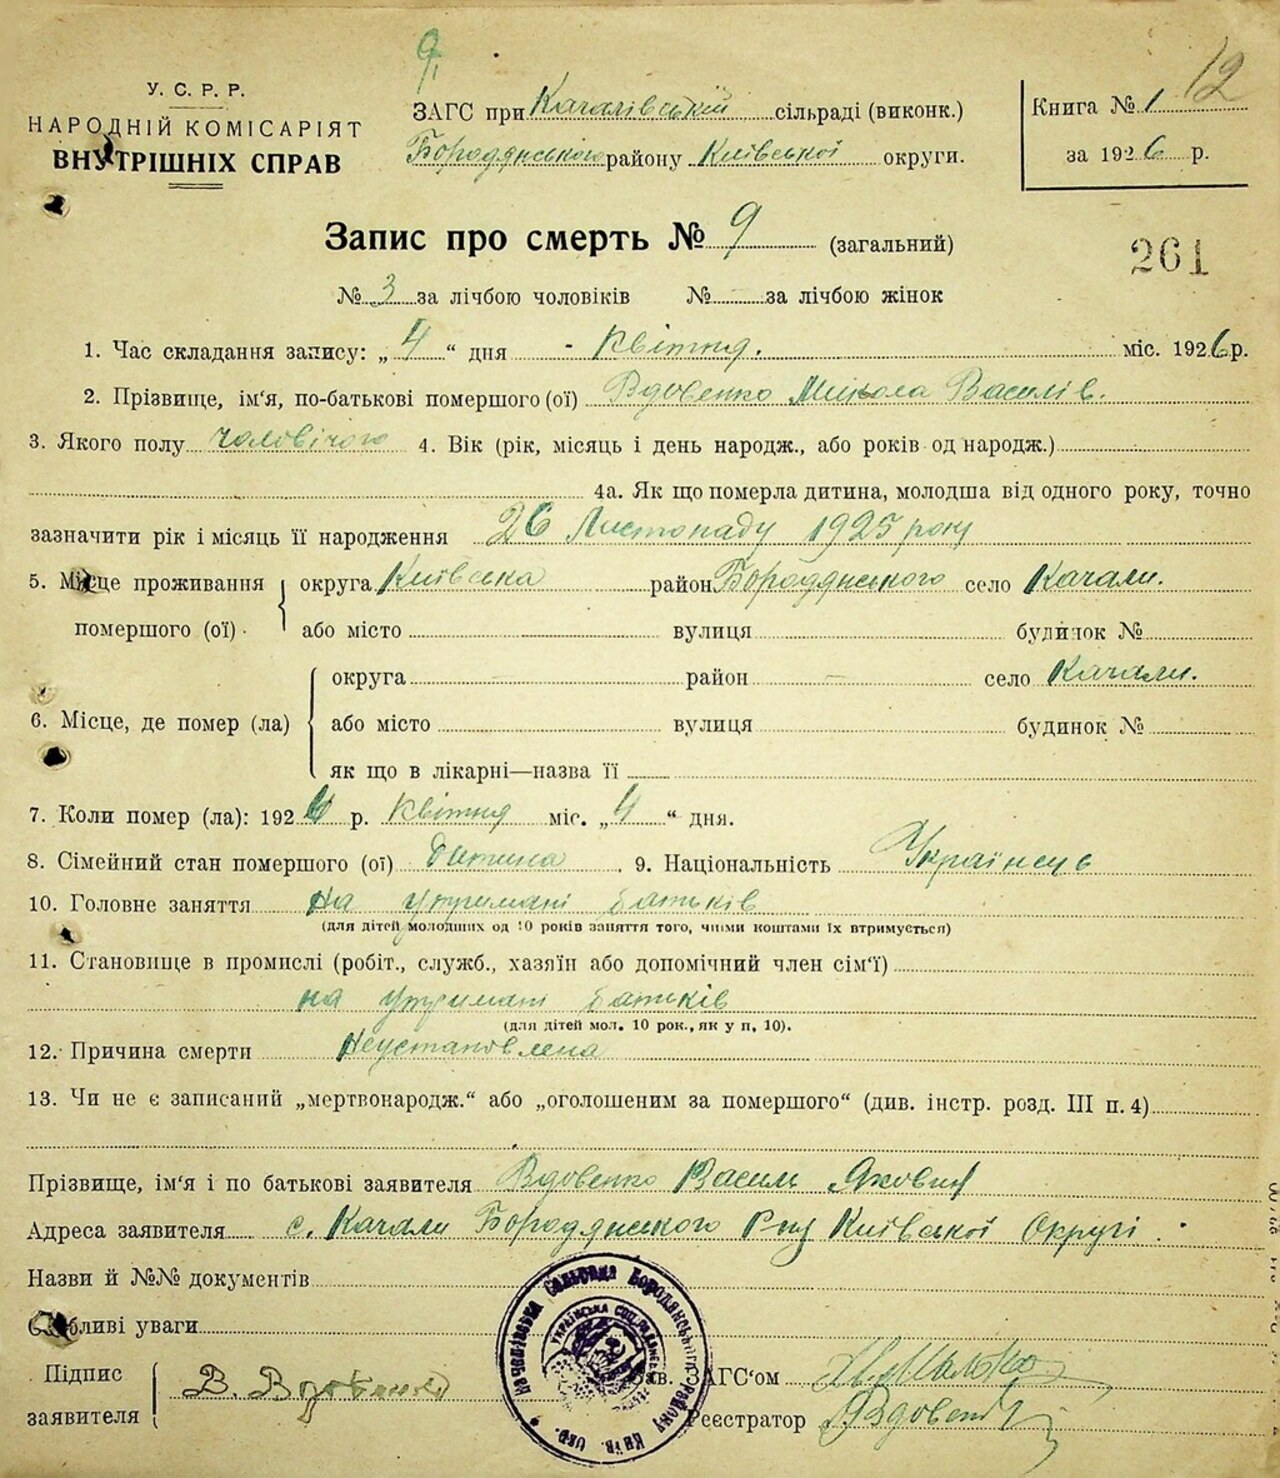 9.
12
У. С. Р. Р.
НАРОДНІЙ КОМІСАРІЯТ
ВНУТРІШНІХ СПРАВ
ЗАГС при Качалівській сільраді (виконк.)
Бородянського району Київської округи.
Книга № 1
за 1926 р.
Запис про смерть № 9 (загальний)
261
№ 3 за лічбою чоловіків № за лічбою жінок
1. Час складання запису: „ 4 “ дня - Квітня. міс. 1926 р.
2. Прізвище, ім‘я, по-батькові помершого (ої) Вдовенко Микола Василів.
3. Якого полу чоловічого 4. Вік (рік, місяць і день народж., або років од народж.)
4а. Як що померла дитина, молодша від одного року, точно
зазначити рік і місяць її народження 26 Листопаду 1925 року
5. Місце проживання округа Київська район Бородянського село Качали.
помершого (ої) або місто вулиця будинок №
округа — район — село Качали.
6. Місце, де помер (ла) або місто вулиця будинок №
як що в лікарні—назва її
7. Коли помер (ла): 1926 р. Квітня міс. „ 4 “ дня.
8. Сімейний стан помершого (ої) дитина . 9. Національність Українець
10. Головне заняття на утримані батьків
(для дітей молодших од 10 років заняття того, чиїми коштами їх втримується)
11. Становище в промислі (робіт., служб., хазяїн або допомічний член сім‘ї)
на утримані батьків
(для дітей мол. 10 рок., як у п. 10).
12. Причина смерти Неустановлена
13. Чи не є записаний „мертвонародж.“ або „оголошеним за помершого“ (див. інстр. розд. III п. 4)
Прізвище, ім‘я і по батькові заявителя Вдовенко Василь Якович
Адреса заявителя с. Качали Бородянського Р-ну Київської Округі
Назви й №№ документів
Особливі уваги
Підпис
заявителя В. Вдовенко
Зав. ЗАГС‘ом
Реєстратор Вдовен
Качалівська Сільрада Бородянського району Київ. окр.